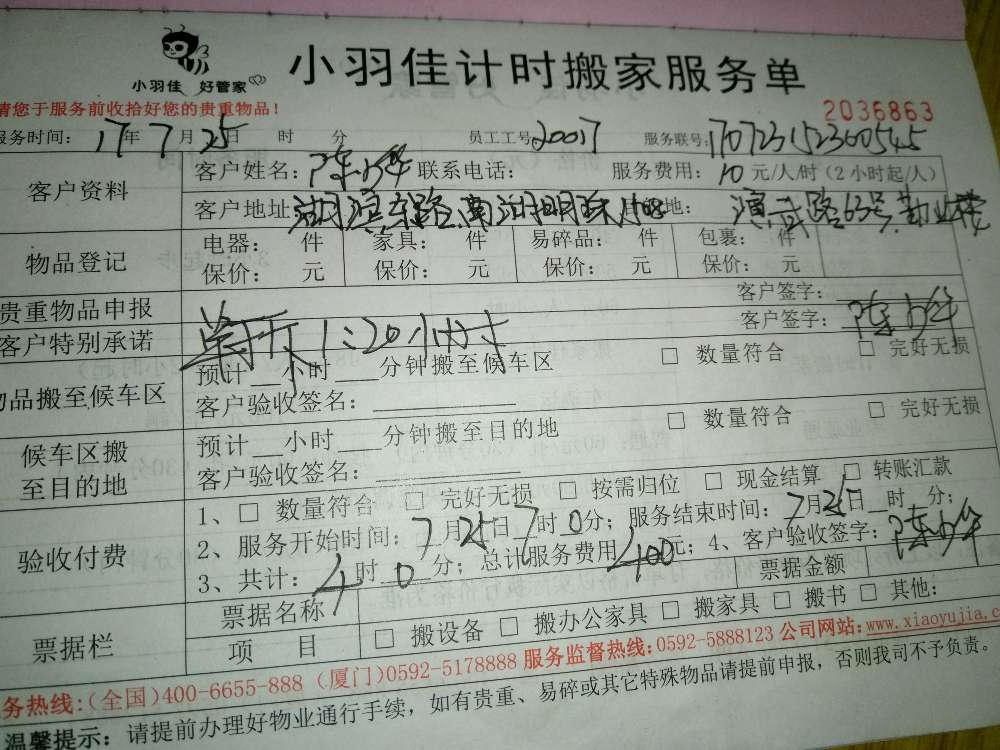 小羽佳 好管家
小羽佳计时搬家服务单
请您于服务前收拾好您的贵重物品！
2036863
服务时间：17年7月25日 时 分 员工工号20017 服务联号：
客户资料
客户姓名：陈 联系电话： 服务费用：10元/人/时（2小时起/人）
客户地址：湖滨东路 明珠 地：演武路63号勤业楼
物品登记
电器： 件 家具： 件 易碎品： 件 包裹： 件
保价： 元 保价： 元 保价： 元 保价： 元
贵重物品申报 客户签字：
客户特别承诺 1:20小时 客户签字：陈
物品搬至候车区
预计__小时___分钟搬至候车区 □ 数量符合 □ 完好无损
客户验收签名：
候车区搬至目的地
预计__小时___分钟搬至目的地 □ 数量符合 □ 完好无损
客户验收签名：
验收付费
1、□ 数量符合 □ 完好无损 □ 按需归位 □ 现金结算 □ 转账汇款
2、服务开始时间：7月25日7时0分；服务结束时间：7月25日__时__分；
3、共计：4时0分；总计服务费用400元；4、客户验收签字：陈
票据栏
票据名称 票据金额
项 目 □ 搬设备 □ 搬办公家具 □ 搬家具 □ 搬书 □ 其他：
服务热线：(全国)400-6655-888 (厦门)0592-5178888 服务监督热线：0592-5888123 公司网站：www.xiaoyujia.c
温馨提示：请提前办理好物业通行手续，如有贵重、易碎或其它特殊物品请提前申报，否则我司不予负责。